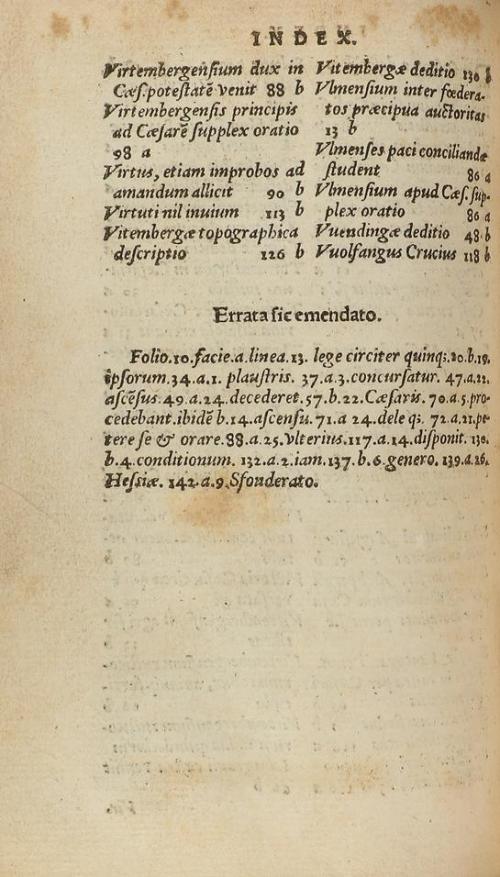 INDEX.
Virtembergensium dux in
Cæs. potestatē venit 88 b
Virtembergensis principis
ad Cæsarē supplex oratio
98 a
Virtus, etiam improbos ad
amandum allicit 90 b
Virtuti nil inuium 113 b
Vitembergæ topographica
descriptio 126 b
Vitembergæ deditio 130 b
Vlmensium inter fœdera-
tos præcipua auctoritas
13 b
Vlmenses paci conciliandæ
student 86 a
Vlmensium apud Cæs. sup-
plex oratio 86 a
Vuendingæ deditio 48 b
Vuolfangus Crucius 118 b
Errata sic emendato.
Folio.10.facie.a.linea.13. lege circiter quinq;.20.b.19.
ipsorum.34.a.1. plaustris. 37.a.3.concursatur. 47.a.22.
ascēsus.49.a.24.decederet.57.b.22.Cæsaris. 70.a.5.pro-
cedebant.ibidē b.14.ascensu.71.a 24.dele q;. 72.a.21.pe-
tere se & orare.88.a.25.vlterius.117.a.14.disponit. 130.
b.4.conditionum. 132.a.2.iam.137.b.6.genero. 139.a.26.
Hessiæ. 142.a.9.Sfonderato.